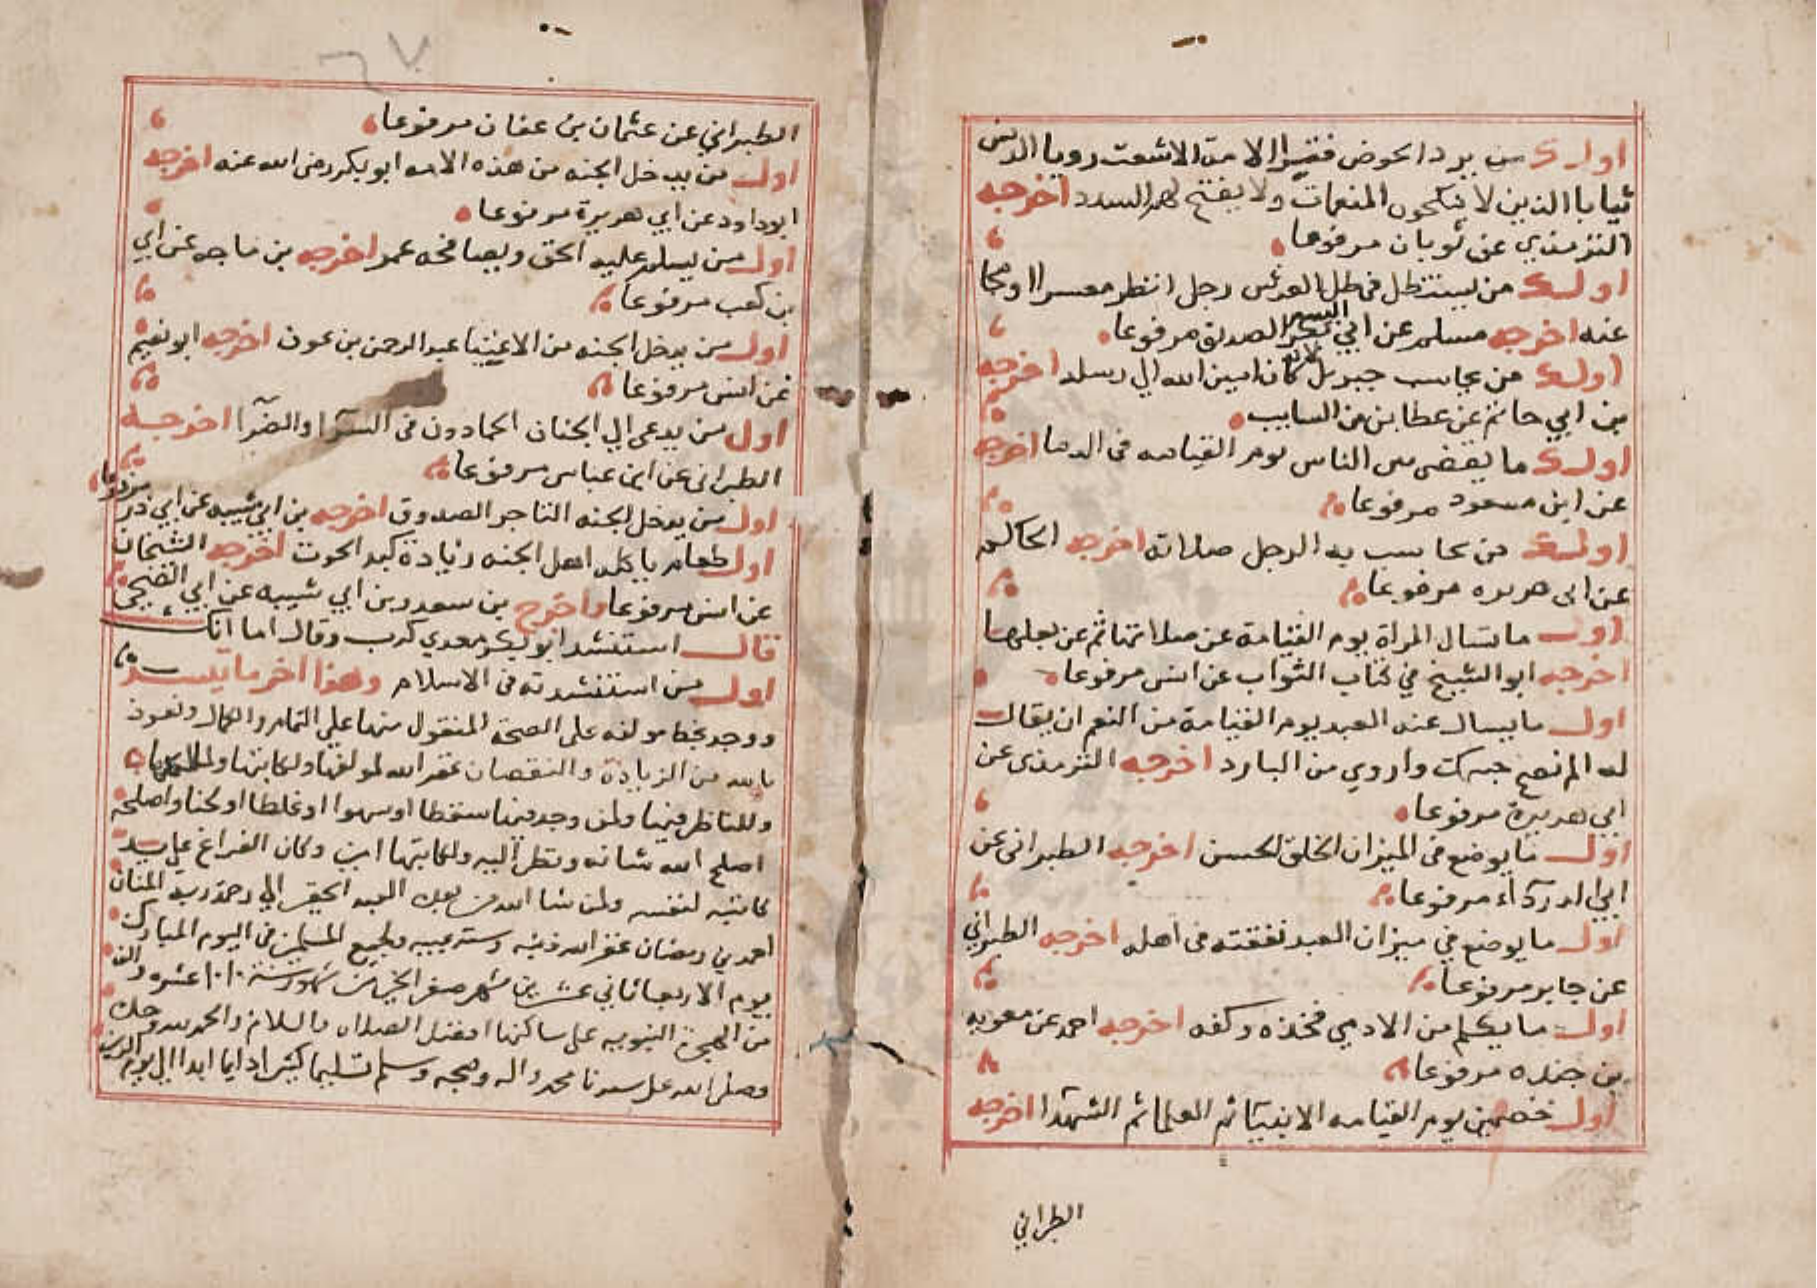 اول من يرد الحوض فقرا الامة الاشعث رويا الدنس
ثيابا الذين لا ينكحون المنعمات ولا يفتح لهم السدد اخرجه
الترمذي عن ثوبان مرفوعا
اول من يستظل في ظل العرش رجل انظر معسرا او محا
عنه اخرجه مسلم عن ابي اليسر الصديق مرفوعا
اول من يحاسب جبريل لانه كان امين الله الي رسله اخرجه
بن ابي حاتم عن عطا بن من السايب
اول ما يقضى بين الناس يوم القيامه في الدما اخرجه
عن ابن مسعود مرفوعا
اول من يحاسب به الرجل صلاته اخرجه الحاكم
عن ابي هريره مرفوعا
اول ما تسال المراة يوم القيامة عن صلاتها ثم عن بعلها
اخرجه ابو الشيخ في كتاب الثواب عن انس مرفوعا
اول ما يسال عنه العبد يوم القيامة من النعم ان يقال
له الم نصح جسمك واروي من البارد اخرجه الترمذى عن
ابي هريرة مرفوعا
اول ما يوضع في الميزان الخلق الحسن اخرجه الطبرانى عن
ابي الدرداء مرفوعا
اول ما يوضع في ميزان العبد نفقته في اهله اخرجه الطبراني
عن جابر مرفوعا
اول ما يتكلم من الادمي فخذه وكفه اخرجه احمد عن معويه
بن حيده مرفوعا
اول خصمين يوم القيامه الانبيا ثم العلما ثم الشهدا اخرجه
الطبراني
٦٧
الطبراني عن عثمان بن عفان مرفوعا
اول من يدخل الجنه من هذه الامه ابو بكر رضى الله عنه اخرجه
ابو داود عن ابي هريرة مرفوعا
اول من يسلم عليه الحق ويصافحه عمر اخرجه بن ماجه عن ابي
بن كعب مرفوعا
اول من يدخل الجنه من الاغنيا عبد الرحمن بن عوف اخرجه ابو نعيم
عن انس مرفوعا
اول من يدعى الي الجنان الحمادون في السرا والضرا اخرجه
الطبرانى عن ابن عباس مرفوعا
اول من يدخل الجنه التاجر الصدوق اخرجه بن ابي شيبه عن ابي ذر مرفوعا
اول طعام ياكله اهل الجنه زيادة كبد الحوت اخرجه الشيخان
عن انس مرفوعا واخرج بن سعد وبن ابي شيبه عن ابي الضحى
قال استنشد ابو بكر معدي كرب وقال اما انك
اول من استنشدته في الاسلام وهذا اخر ما تيسر
ووجد بخط مولفه على الصحة المنقول منها علي التمام والكمال ونعوذ
بالله من الزيادة والنقصان غفر الله لمولفها ولكاتبها ولمالكها
وللناظر فيها ولمن وجد فيها سقطا او سهوا او غلطا او لحنا واصلحه
اصلح الله شانه ونظر اليه ولكاتبها امين وكان الفراغ علي يد
كاتبه لنفسه ولمن شا الله من بعده العبد الحقير الي رحمة ربه المنان
احمد بن رمضان غفر الله ذنبه وستر عيبه ولجميع المسلمين في اليوم المبارك
يوم الاربعا ثاني عشرين شهر صفر الخير من شهور سنة ١٠١٠ عشره والف
من الهجرة النبويه على ساكنها افضل الصلاه والسلام والحمد لله وحده
وصلى الله على سيدنا محمد واله وصحبه وسلم تسليما كثيرا دايما ابدا الى يوم الدين